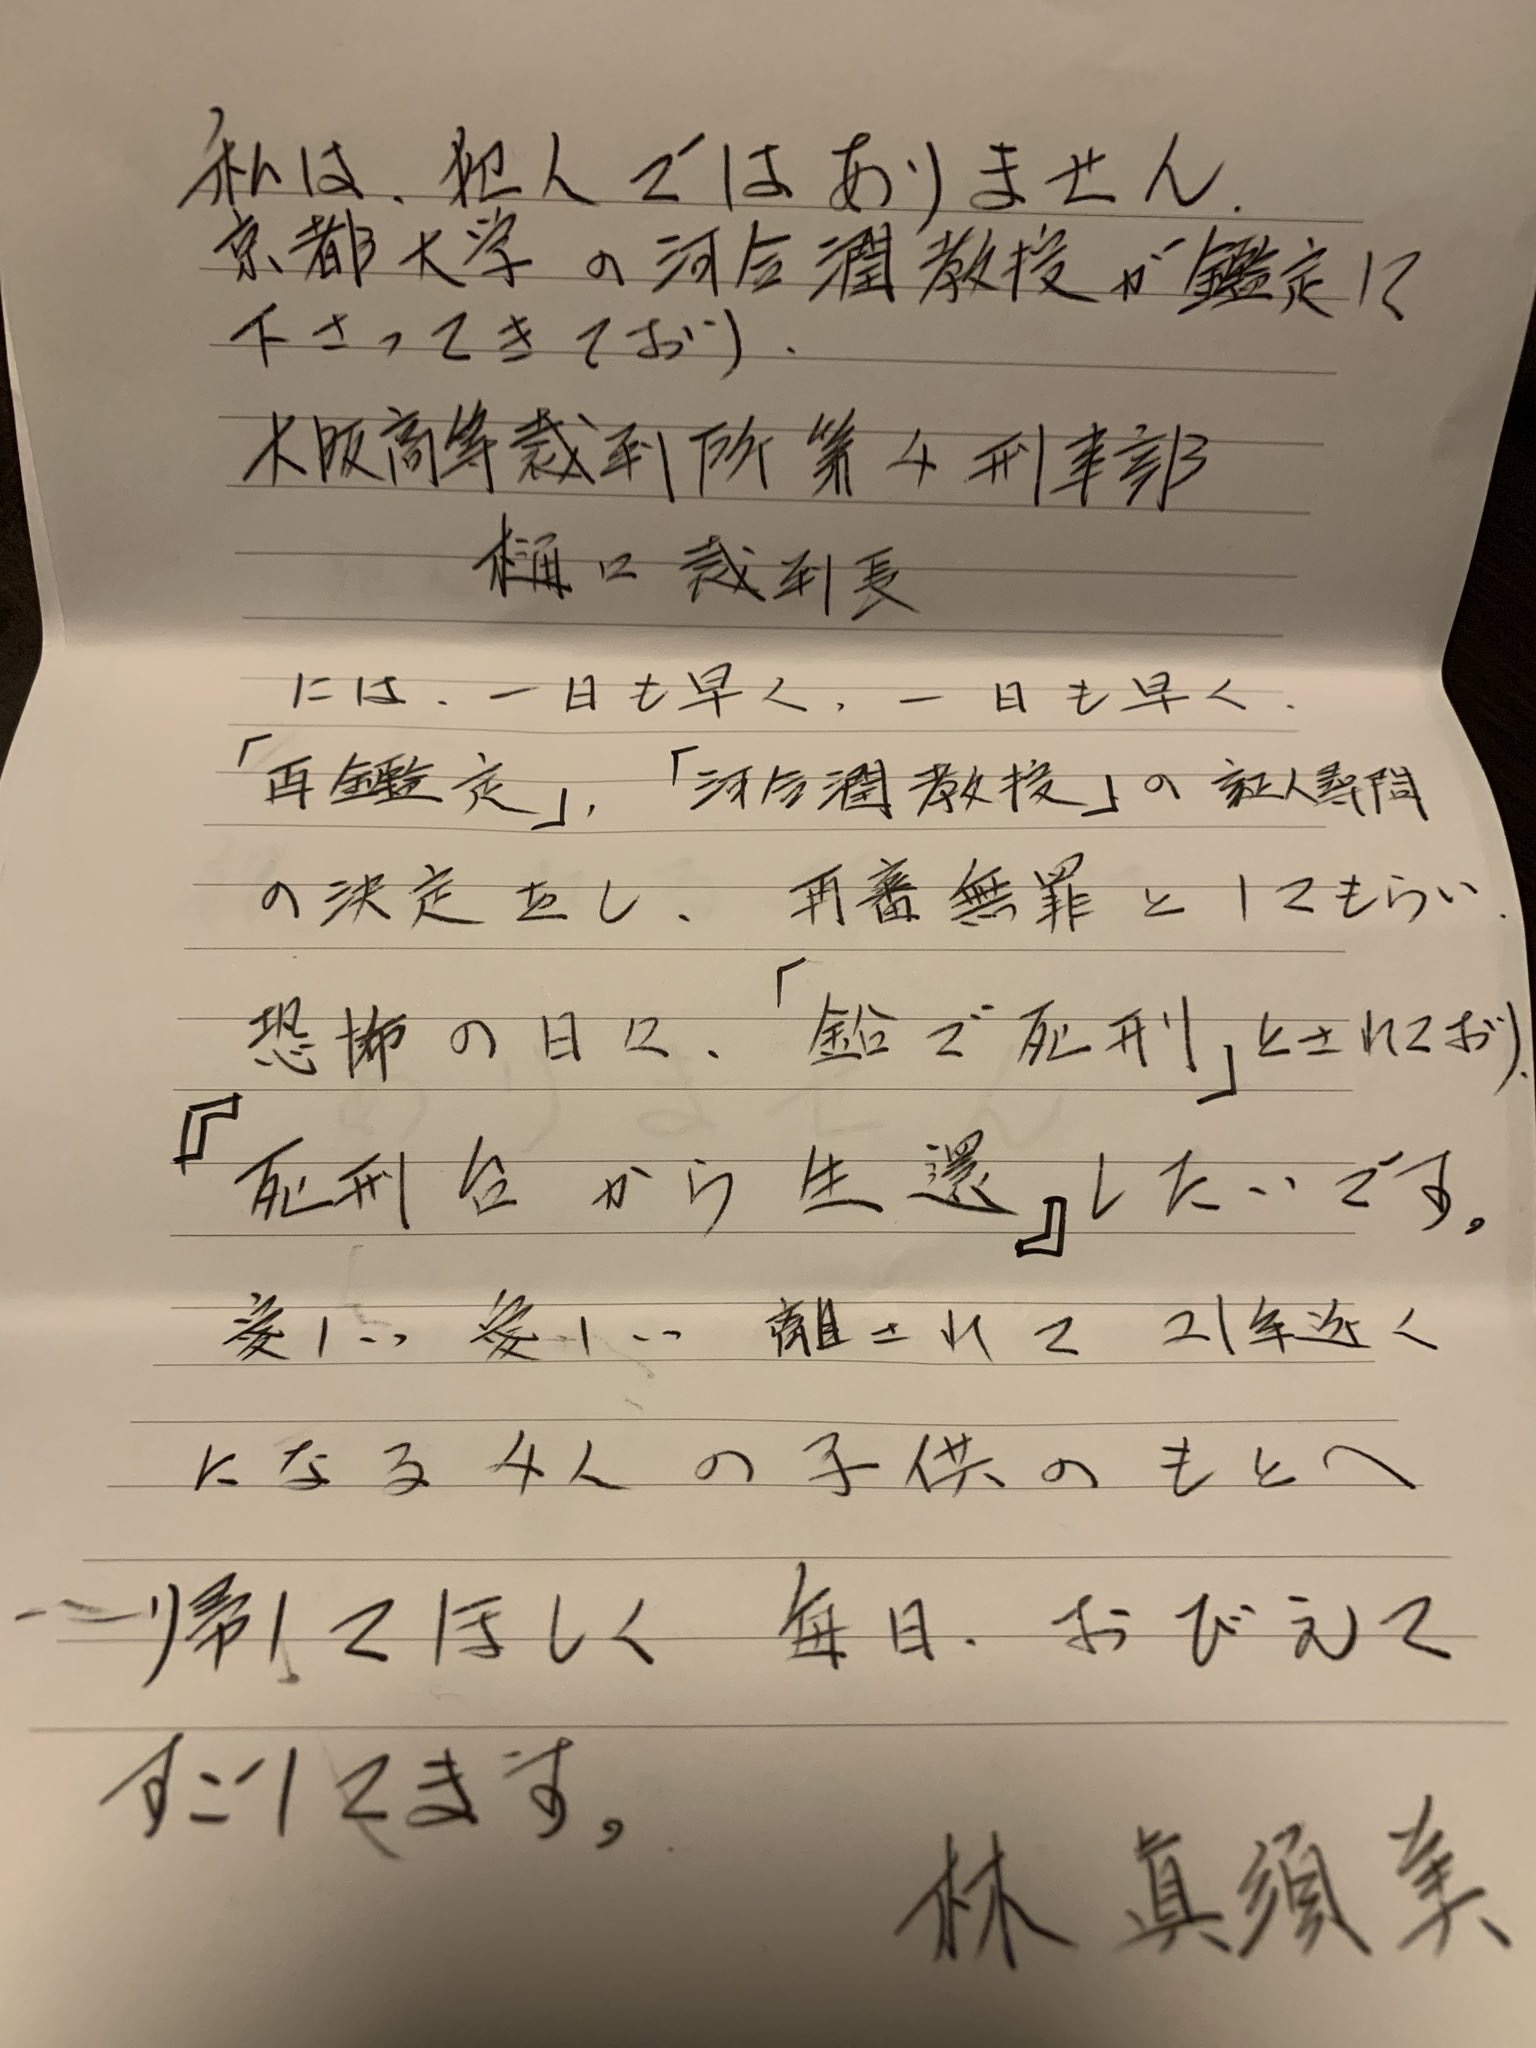 私は、犯人ではありません.
京都大学の河合潤教授が鑑定に
下さってきており.
大阪高等裁判所第4刑事部
樋口裁判長
には、一日も早く、一日も早く.
「再鑑定」,「河合潤教授」の証人尋問
の決定をし、再審無罪としてもらい.
恐怖の日に、「鉛で死刑」とされており.
『死刑台から生還』したいです。
愛しい愛しい離されて21年近く
になる4人の子供のもとへ
帰してほしく毎日、おびえて
すごしてます。
林眞須美